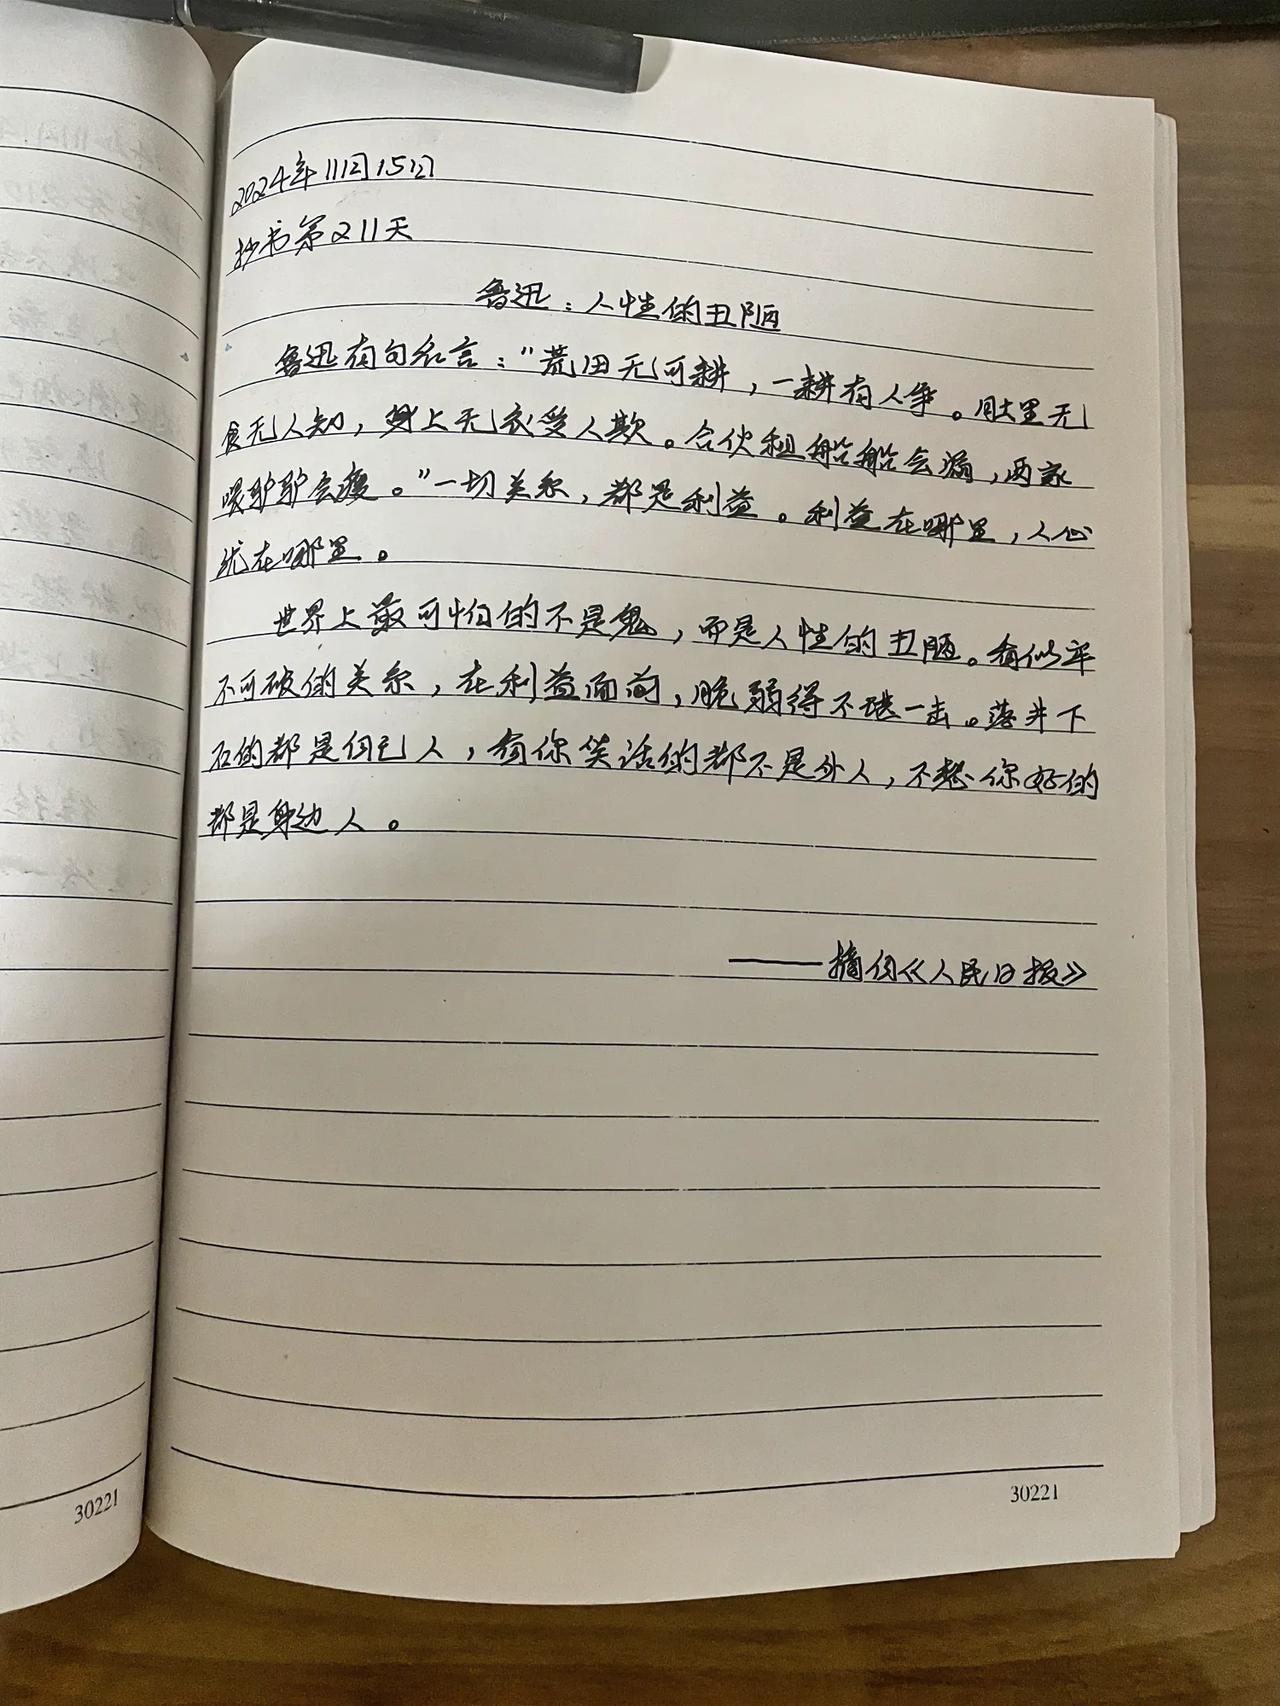 2024年11月15日
抄书第211天
鲁迅：人性的丑陋
鲁迅有句名言："荒田无可耕，一耕有人争。肚里无
食无人知，身上无衣受人欺。合伙租船船会漏，两家
喂驴驴会瘦。"一切关系，都是利益。利益在哪里，人心
就在哪里。
世界上最可怕的不是鬼，而是人性的丑陋。看似牢
不可破的关系，在利益面前，脆弱得不堪一击。落井下
石的都是自己人，看你笑话的都不是外人，不想你好的
都是身边人。
——摘自《人民日报》
30221
30221